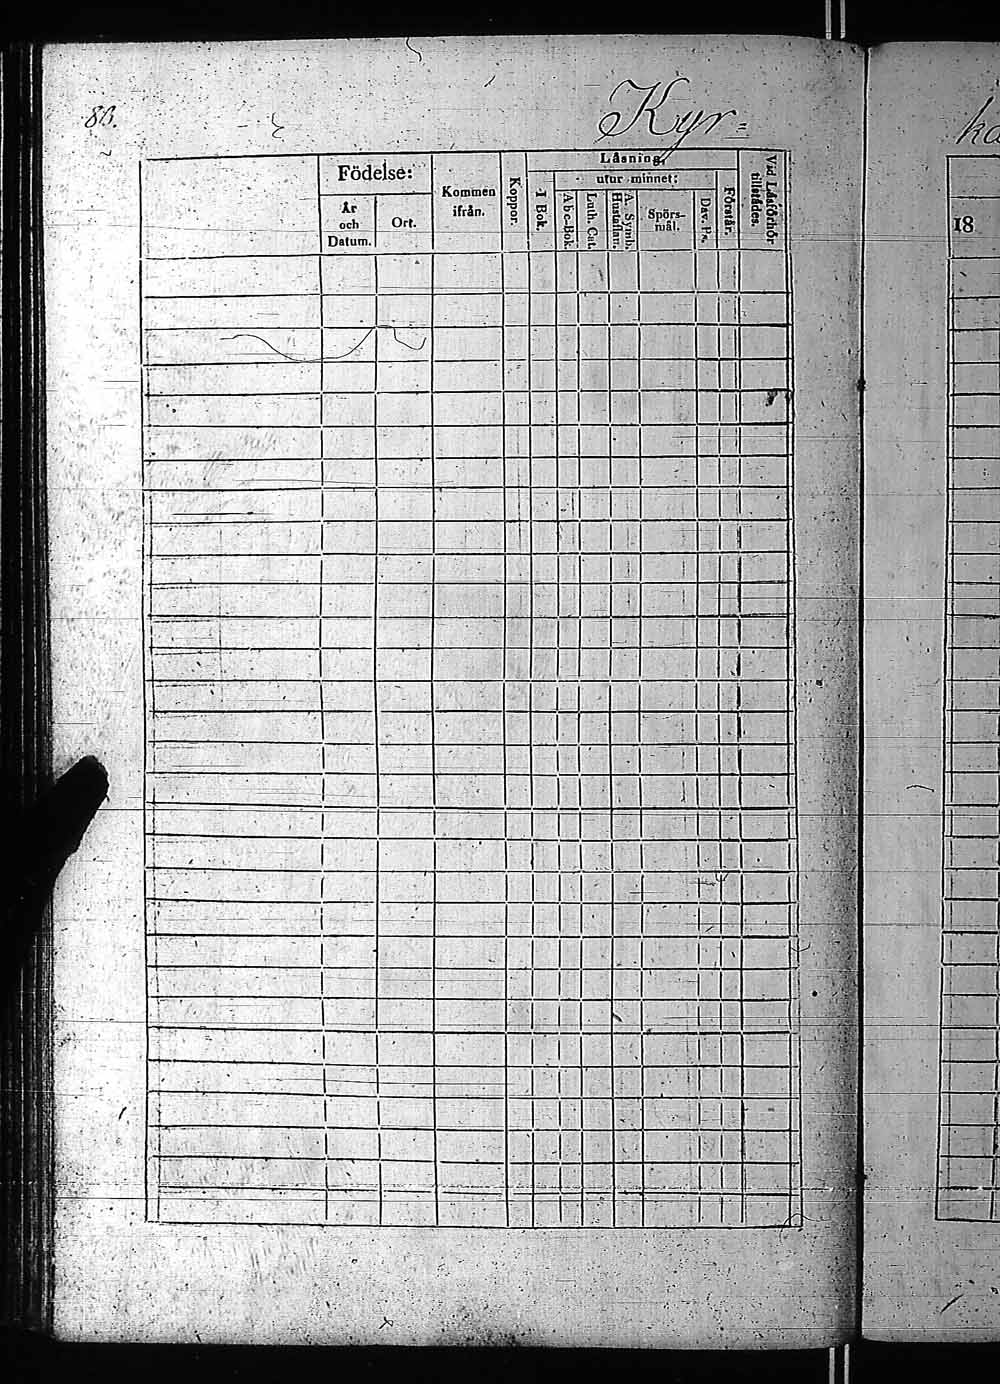 88.
Kyr=
Födelse:
År
och
Datum.
Ort.
Kommen
ifrån.
Koppor.
Läsning,
I Bok.
utur minnet:
Abc-Bok.
Luth. Cat.
A. Symb.
Hustaflan.
Spörs-
mål.
Dav. Ps.
Förstår.
Vid Läsförhör
tillstädes.
18